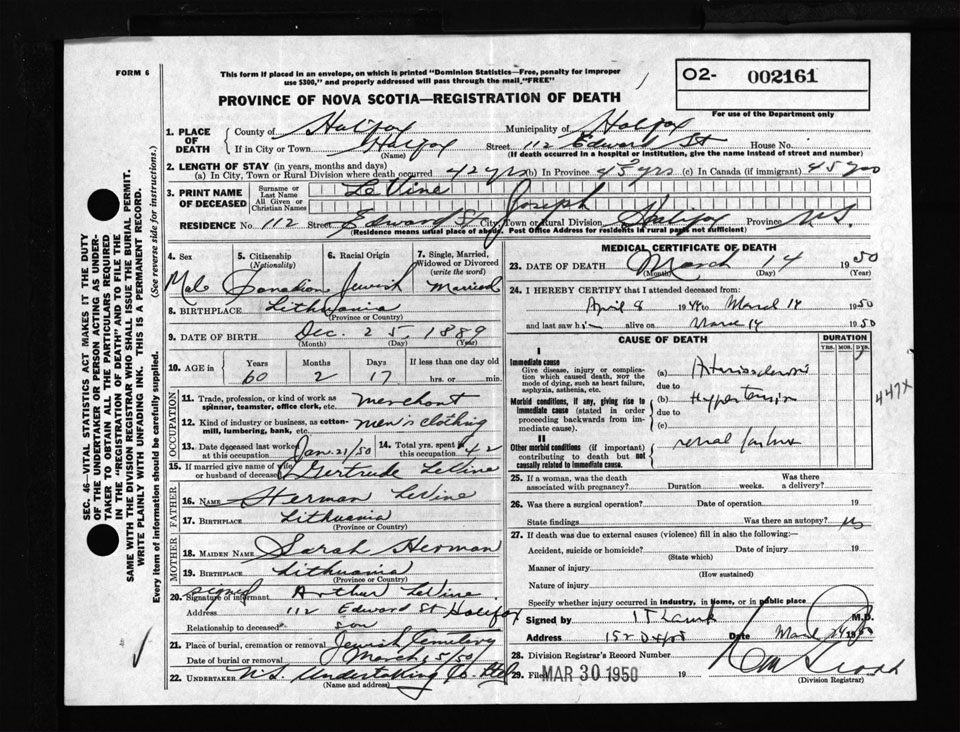 FORM 6
This form if placed in an envelope, on which is printed "Dominion Statistics—Free, penalty for improper
use $300," and properly addressed will pass through the mail "FREE"
PROVINCE OF NOVA SCOTIA—REGISTRATION OF DEATH
O2- 002161
For use of the Department only
SEC. 46—VITAL STATISTICS ACT MAKES IT THE DUTY
OF THE UNDERTAKER OR PERSON ACTING AS UNDER-
TAKER TO OBTAIN ALL THE PARTICULARS REQUIRED
IN THE "REGISTRATION OF DEATH" AND TO FILE THE
SAME WITH THE DIVISION REGISTRAR WHO SHALL ISSUE THE BURIAL PERMIT.
WRITE PLAINLY WITH UNFADING INK. THIS IS A PERMANENT RECORD.
Every item of information should be carefully supplied. (See reverse side for instructions.)
1. PLACE OF DEATH
County of Halifax Municipality of Halifax
If in City or Town Halifax Street 112 Edward St House No.
(Name) (If death occurred in a hospital or institution, give the name instead of street and number)
2. LENGTH OF STAY (in years, months and days)
(a) In City, Town or Rural Division where death occurred 42 yrs (b) In Province 45 yrs (c) In Canada (if immigrant) 45 yrs
3. PRINT NAME OF DECEASED
Surname or Last Name LeVine
All Given or Christian Names Joseph
RESIDENCE No. 112 Street Edward St City Town or Rural Division Halifax Province N.S.
(Residence means usual place of abode. Post Office Address for residents in rural parts not sufficient)
4. Sex Male
5. Citizenship (Nationality) Canadian
6. Racial Origin Jewish
7. Single, Married, Widowed or Divorced (write the word) Married
8. BIRTHPLACE Lithuania
(Province or Country)
9. DATE OF BIRTH Dec. 25, 1889
(Month) (Day) (Year)
10. AGE in Years 60 Months 2 Days 17 If less than one day old
hrs. or min.
OCCUPATION
11. Trade, profession, or kind of work as spinner, teamster, office clerk, etc. merchant
12. Kind of industry or business, as cotton-mill, lumbering, bank, etc. men's clothing
13. Date deceased last worked at this occupation Jan. 21/50
14. Total yrs. spent in this occupation 42
15. If married give name of wife or husband of deceased Gertrude LeVine
FATHER
16. NAME Herman LeVine
17. BIRTHPLACE Lithuania
(Province or Country)
MOTHER
18. MAIDEN NAME Sarah Herman
19. BIRTHPLACE Lithuania
(Province or Country)
20. Signature of informant signed Arthur LeVine
Address 112 Edward St Halifax
Relationship to deceased son
21. Place of burial, cremation or removal Jewish Cemetery
Date of burial or removal March 15/50
22. UNDERTAKER N.S. Undertaking Co. Ltd
(Name and address)
MEDICAL CERTIFICATE OF DEATH
23. DATE OF DEATH March 14 1950
(Month) (Day) (Year)
24. I HEREBY CERTIFY that I attended deceased from:
April 8 1944 to March 14 1950
and last saw him alive on March 14 1950
CAUSE OF DEATH DURATION
YRS. MOS. DYS.
I
Immediate cause
Give disease, injury or complication which caused death, not the mode of dying, such as heart failure, asphyxia, asthenia, etc.
(a) Arteriosclerosis
due to
Morbid conditions, if any, giving rise to immediate cause (stated in order proceeding backwards from immediate cause).
(b) Hypertension
due to
(c)
II
Other morbid conditions (if important) contributing to death but not causally related to immediate cause.
renal failure
447X
25. If a woman, was the death associated with pregnancy? Duration weeks. Was there a delivery?
26. Was there a surgical operation? Date of operation 19
State findings Was there an autopsy? No
27. If death was due to external causes (violence) fill in also the following:—
Accident, suicide or homicide? Date of injury 19
(State which)
Manner of injury
(How sustained)
Nature of injury
Specify whether injury occurred in industry, in home, or in public place
Signed by M.D.
Address Date March 14 1950
28. Division Registrar's Record Number
29. Filed MAR 30 1950 19
(Division Registrar)